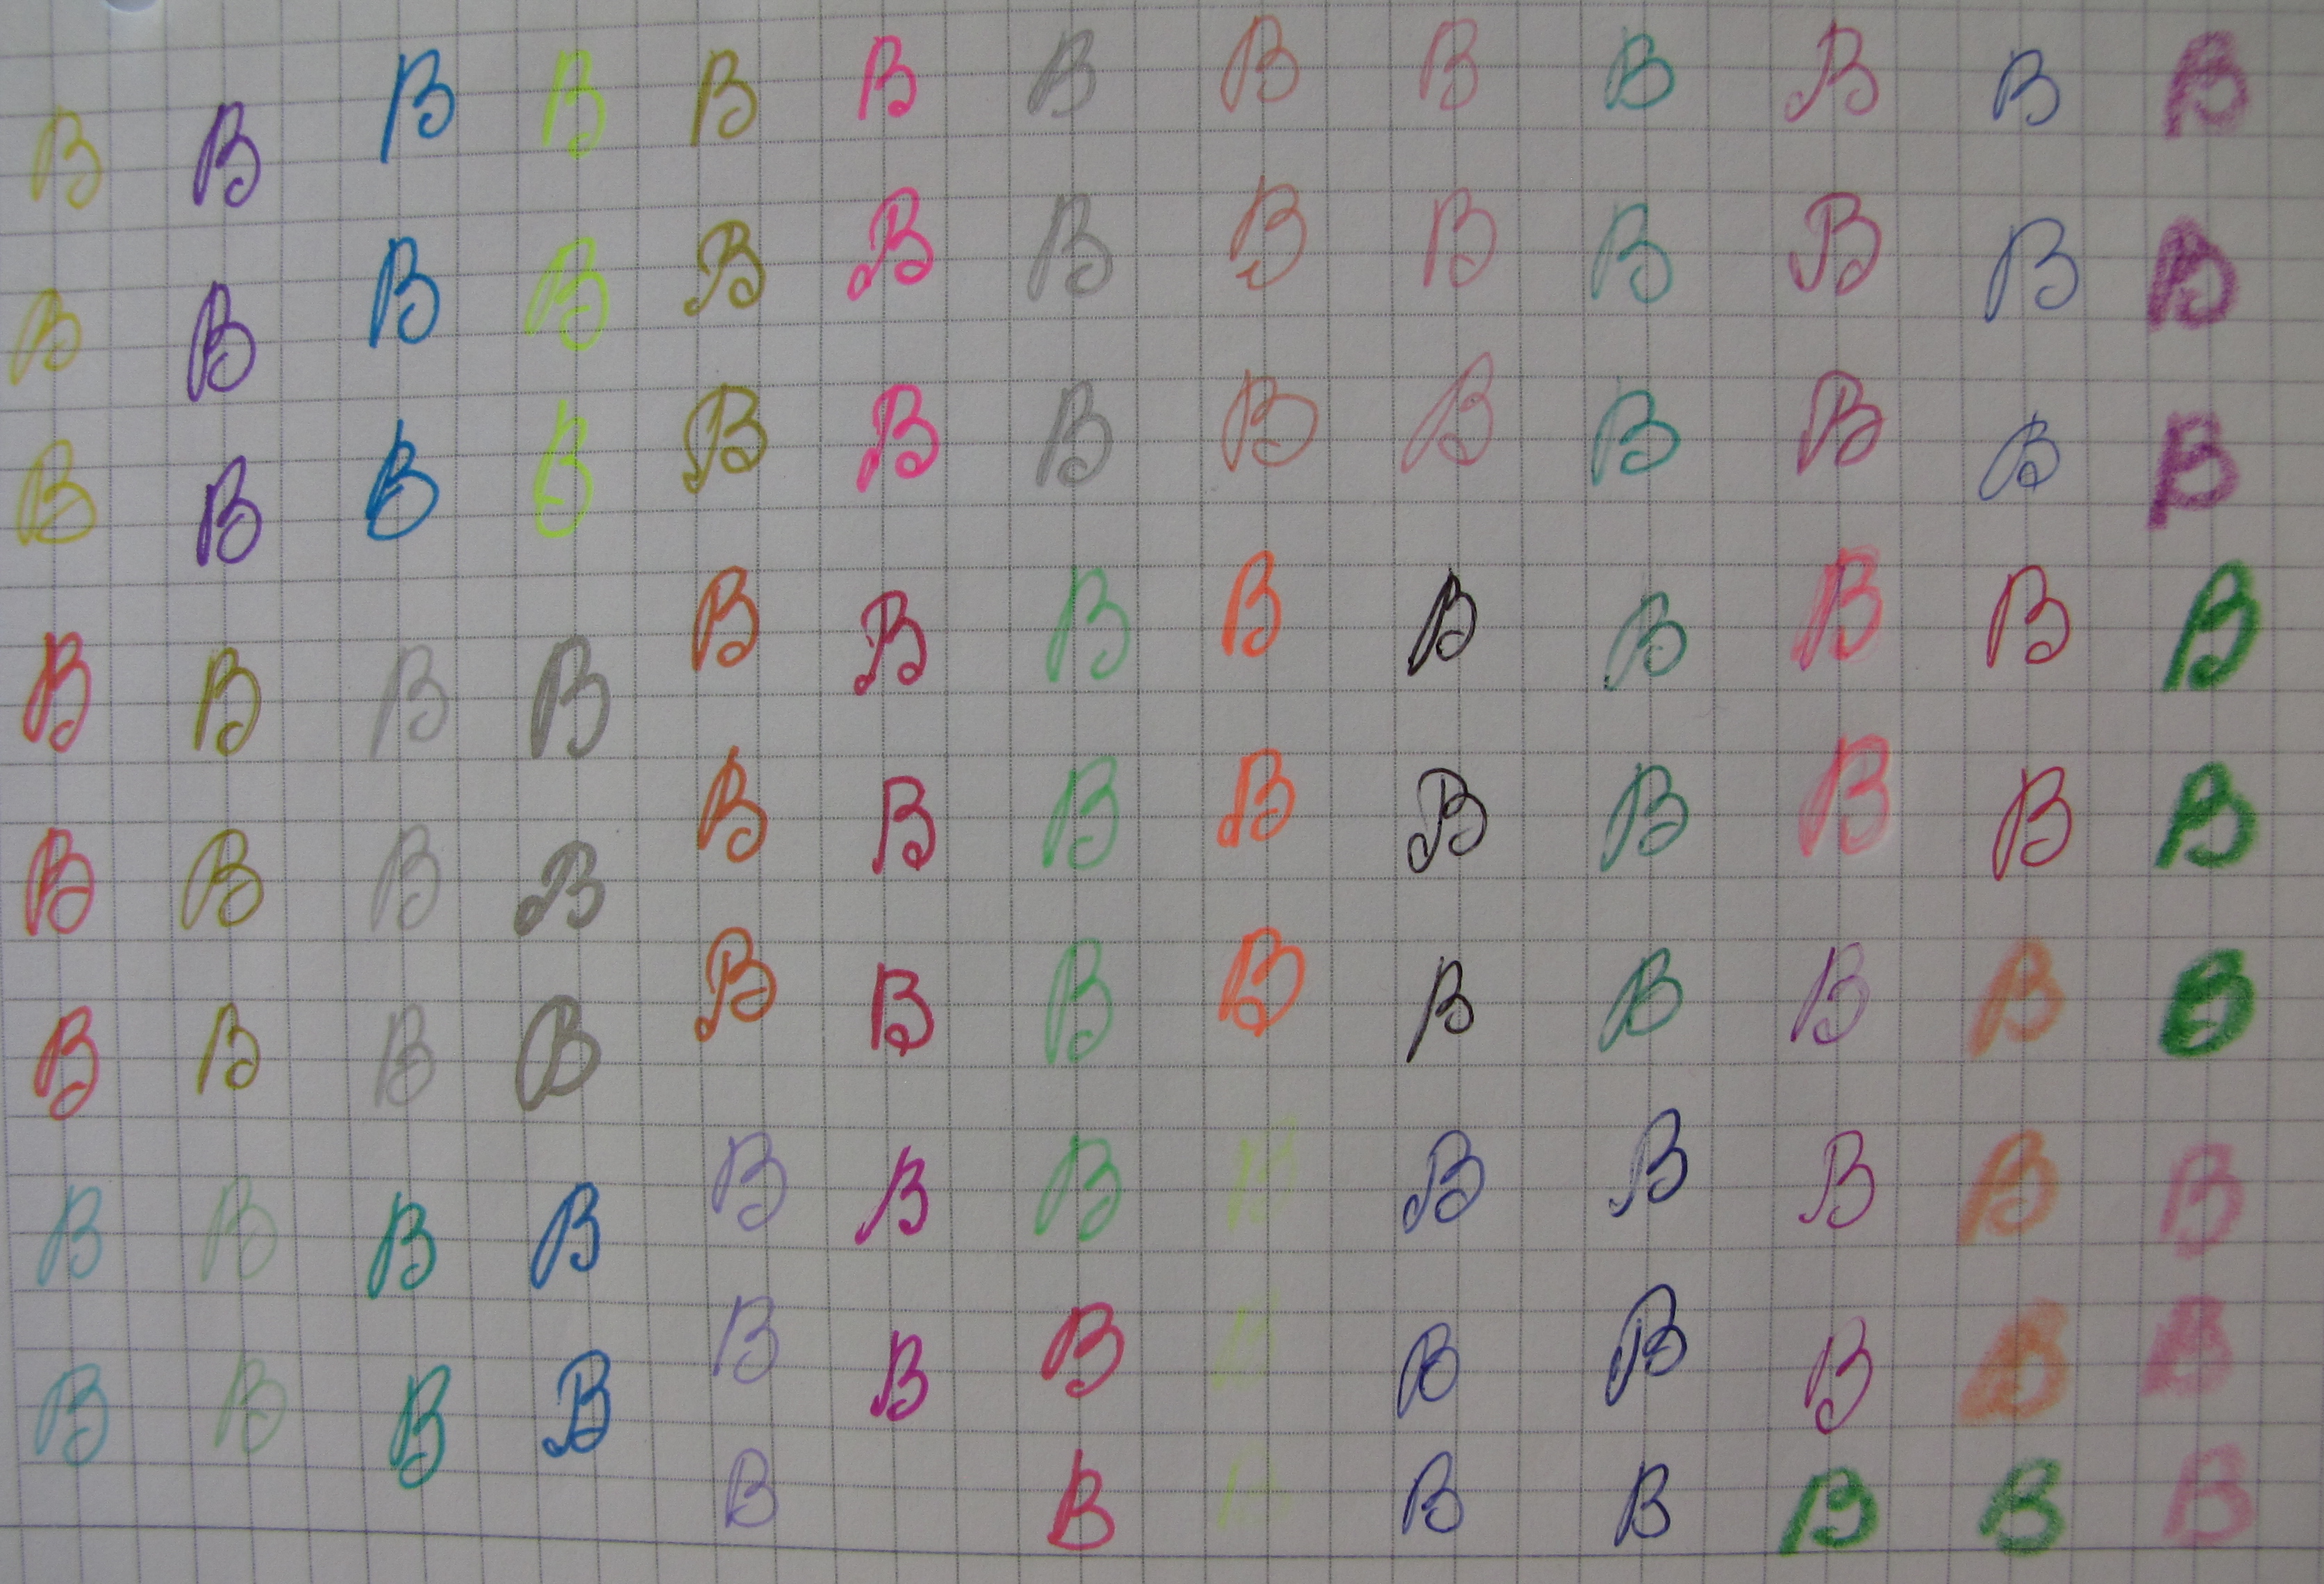 B B B B B B B B B B B B B
B B B B B B B B B B B B B
B B B B B B B B B B B B B
B B B B B B B B B B B B B
B B B B B B B B B B B B B
B B B B B B B B B B B B B
B B B B B B B B B B B B B
B B B B B B B B B B B B B
B B B B B B B B